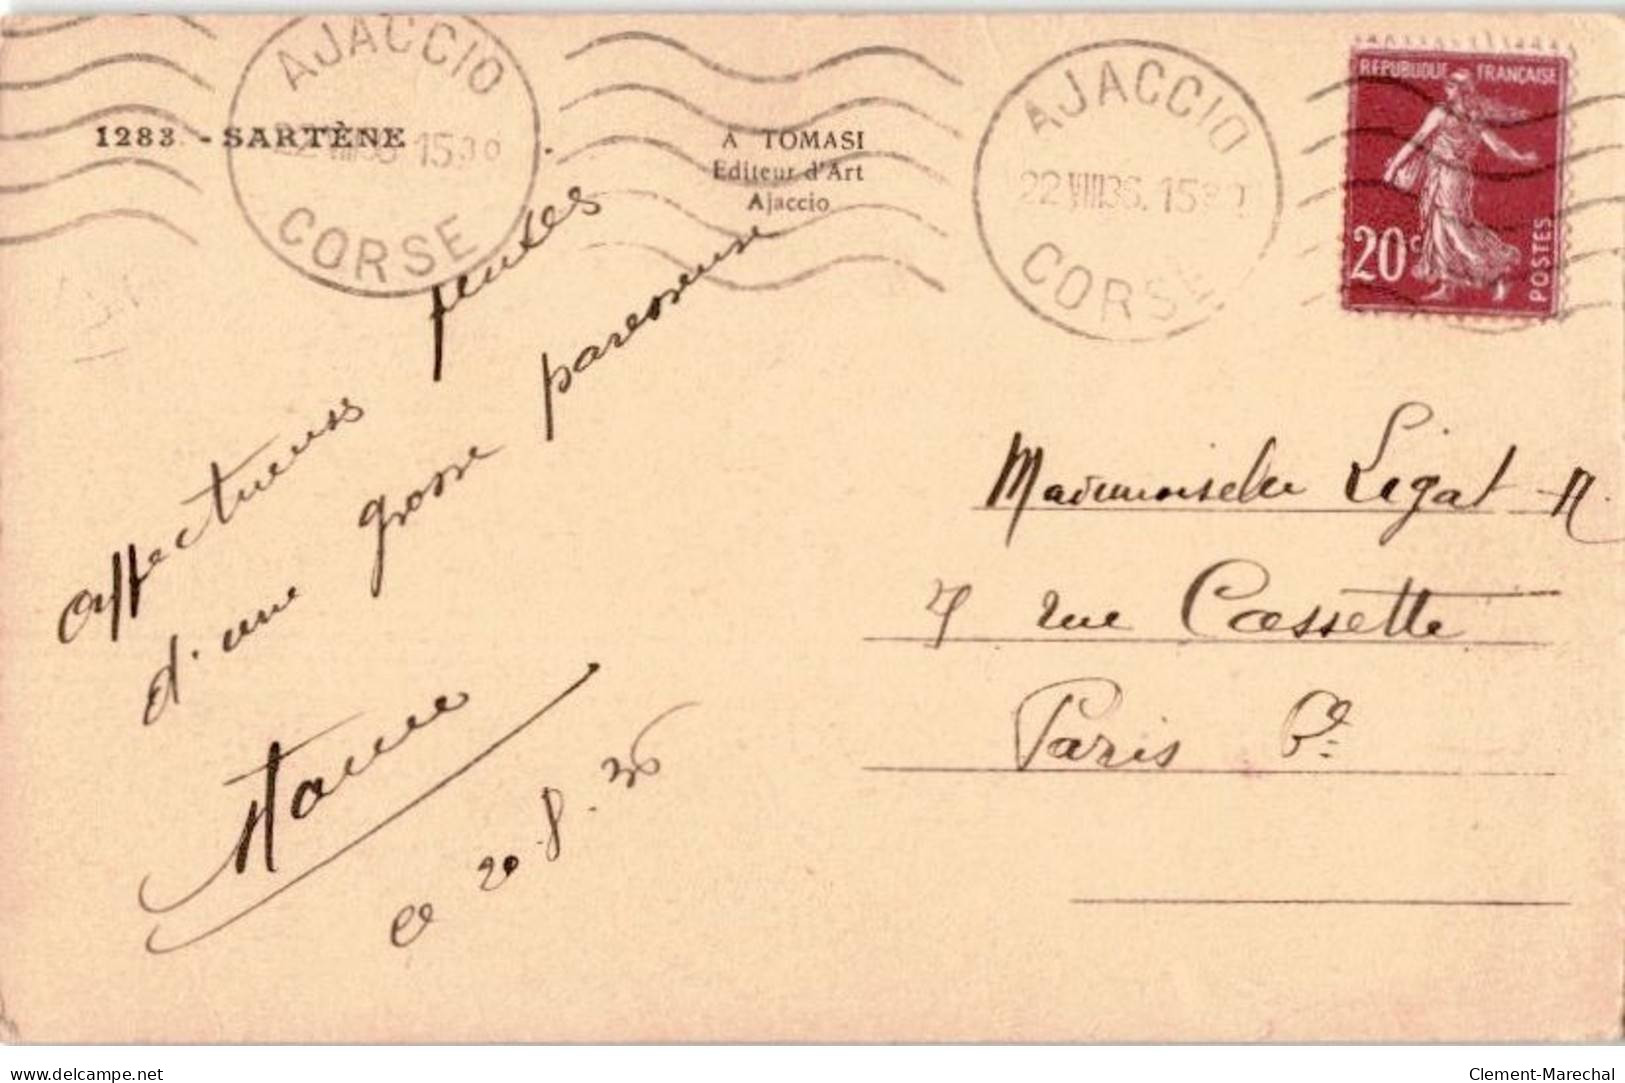 AJACCIO
22 VIII 36 15
CORSE
1283 - SARTÈNE
A TOMASI
Editeur d'Art
Ajaccio
AJACCIO
22 VIII 36. 15
CORSE
REPUBLIQUE FRANÇAISE
20c
POSTES
affectueuses
d'une grosse paresseuse
le 20.8.36
Mademoiselle Ligat M.
7 rue Cassette
Paris 6e
delcampe.net
Clement-Marechal